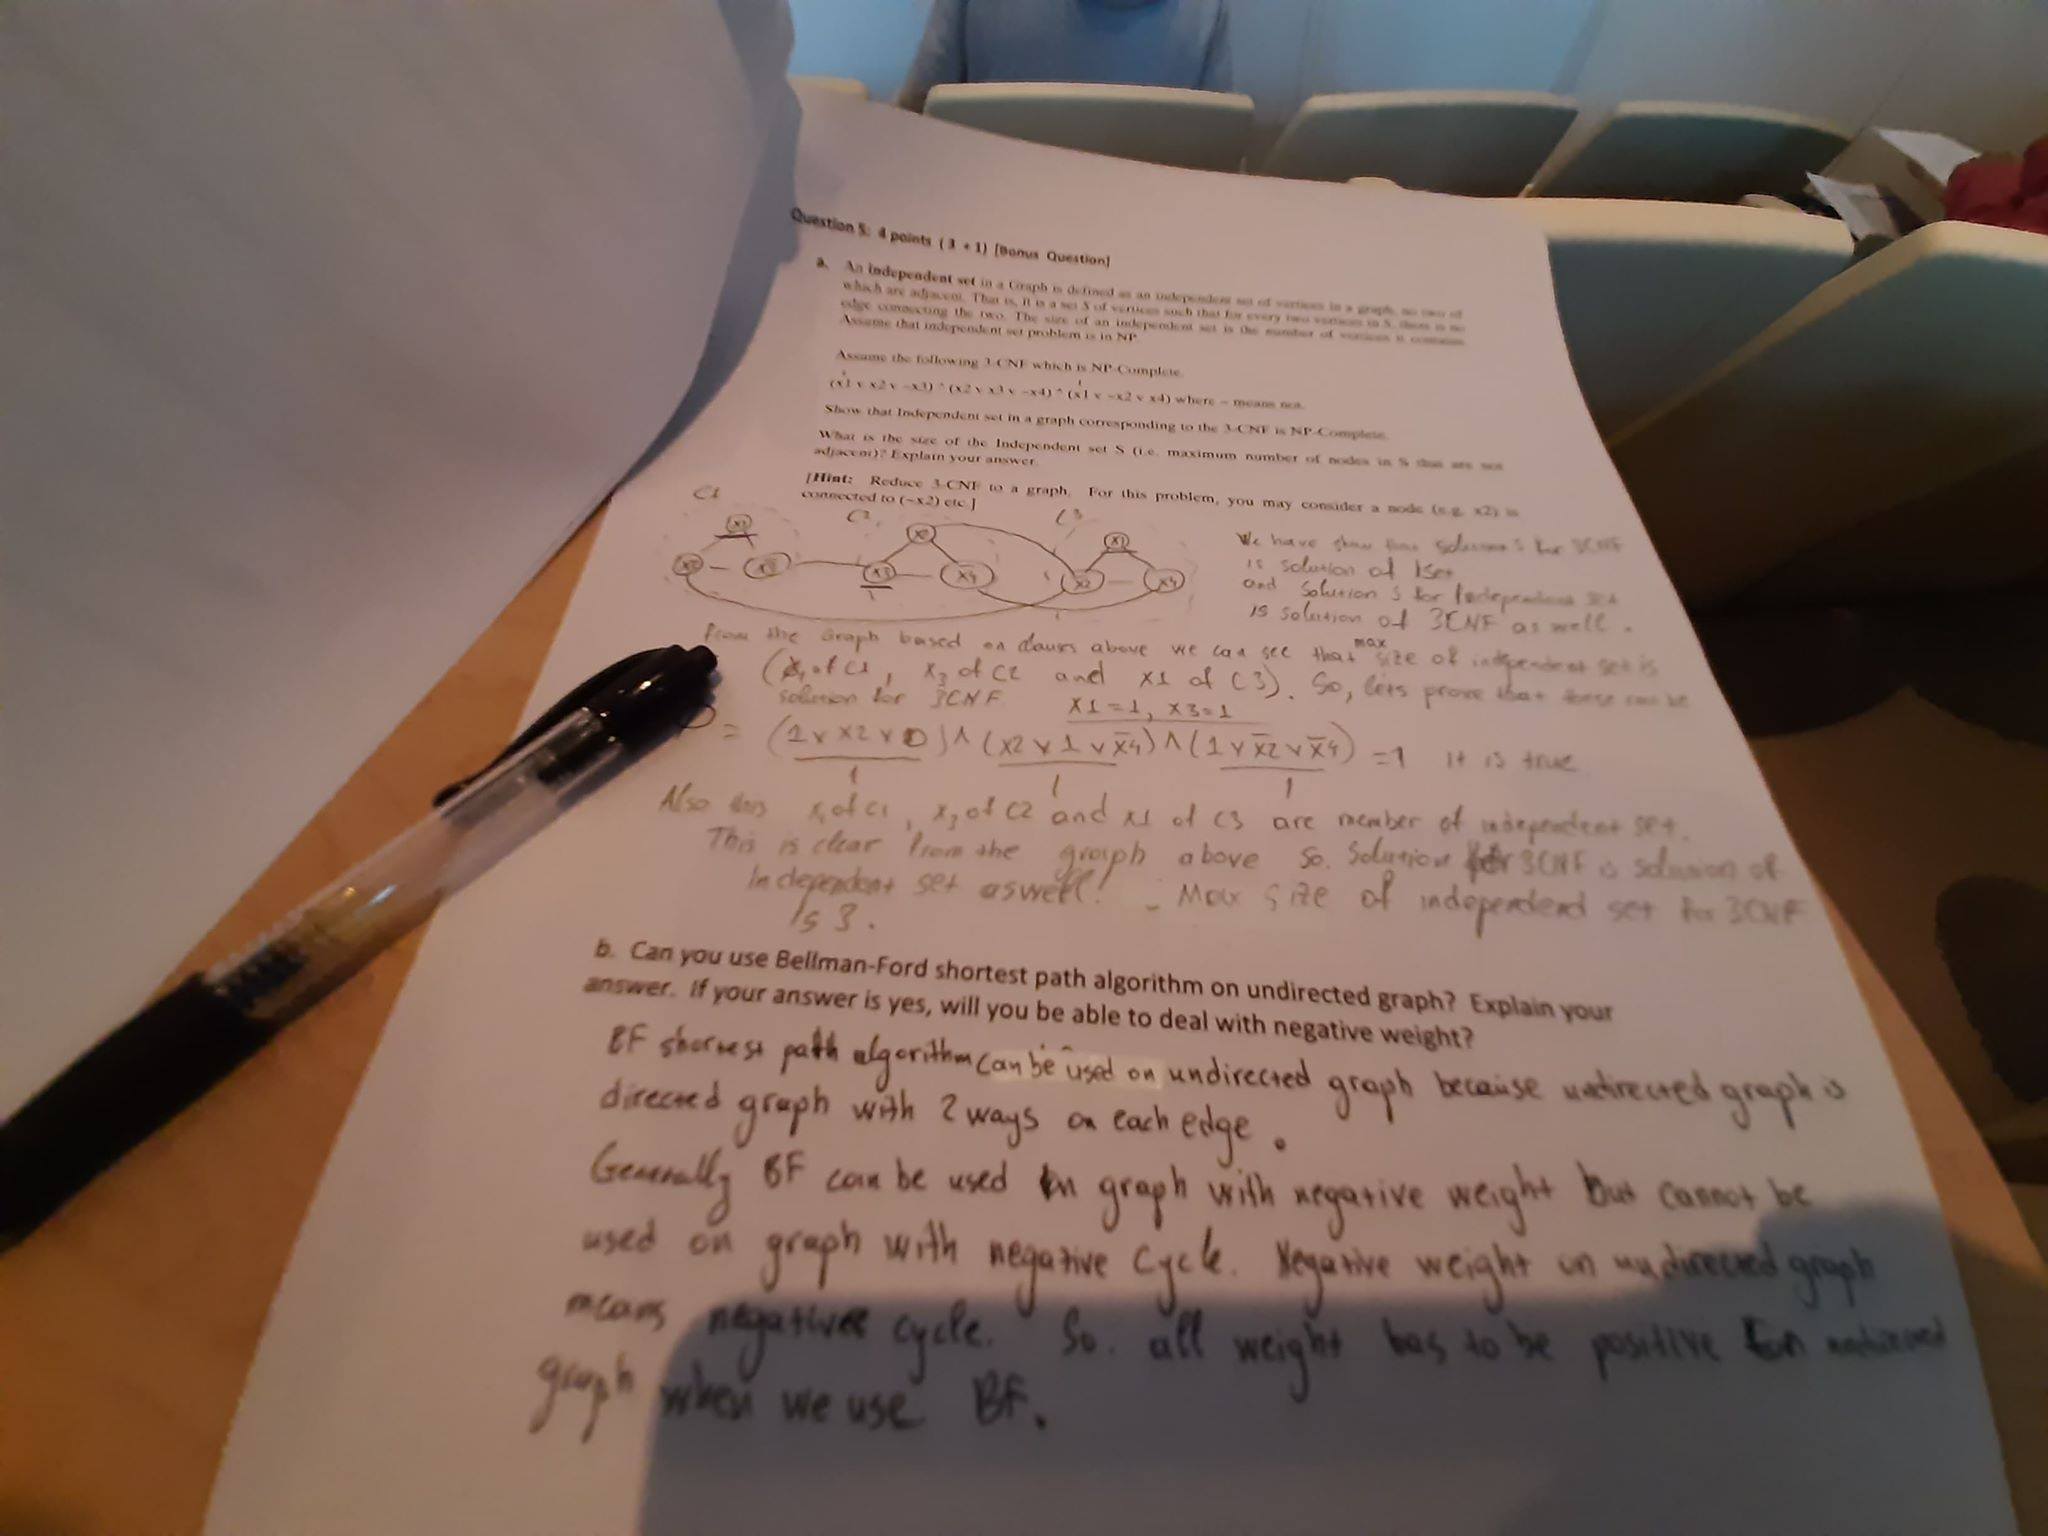 Question 5: 4 points (3 + 1) [Bonus Question]
a. An independent set in a Graph is defined as an independent set of vertices in a graph, no two of
which are adjacent. That is, it is a set S of vertices such that for every two vertices in S, there is no
edge connecting the two. The size of an independent set is the number of vertices it contains
Assume that independent set problem is in NP
Assume the following 3-CNF which is NP-Complete.
(x1 v x2 v ~x3) ^ (x2 v x3 v ~x4) ^ (x1 v ~x2 v x4) where ~ means not.
Show that Independent set in a graph corresponding to the 3-CNF is NP-Complete.
What is the size of the Independent set S (i.e. maximum number of nodes in S that are not
adjacent)? Explain your answer.
[Hint: Reduce 3-CNF to a graph. For this problem, you may consider a node (e.g. x2) is
connected to (~x2) etc.]
C1 C2 C3
We have solution S for 3CNF
is solution of
and Solution S for Independent set
is solution of 3CNF as well.
from the Graph based on clauses above we can see that max size of independent set is
(x1 of C1, x3 of C2 and x1 of C3). So, lets prove that these can be
solution for 3CNF. x1=1, x3=1
= (1 v x2 v 0) ∧ (x2 v 1 v x̄4) ∧ (1 v x̄2 v x̄4) = 1 it is true
1 1 1
Also this x1 of C1, x3 of C2 and x1 of C3 are member of independent set.
This is clear from the graph above so. Solution for 3CNF is solution of
Independent set aswell! Max size of independend set for 3CNF
is 3.
b. Can you use Bellman-Ford shortest path algorithm on undirected graph? Explain your
answer. If your answer is yes, will you be able to deal with negative weight?
BF shortest path algorithm can be used on undirected graph because undirected graph is
directed graph with 2 ways on each edge.
Generally BF can be used on graph with negative weight but cannot be
used on graph with negative cycle. Negative weight on undirected graph
means negative cycle. So. all weight has to be positive on undirected
graph when we use BF.